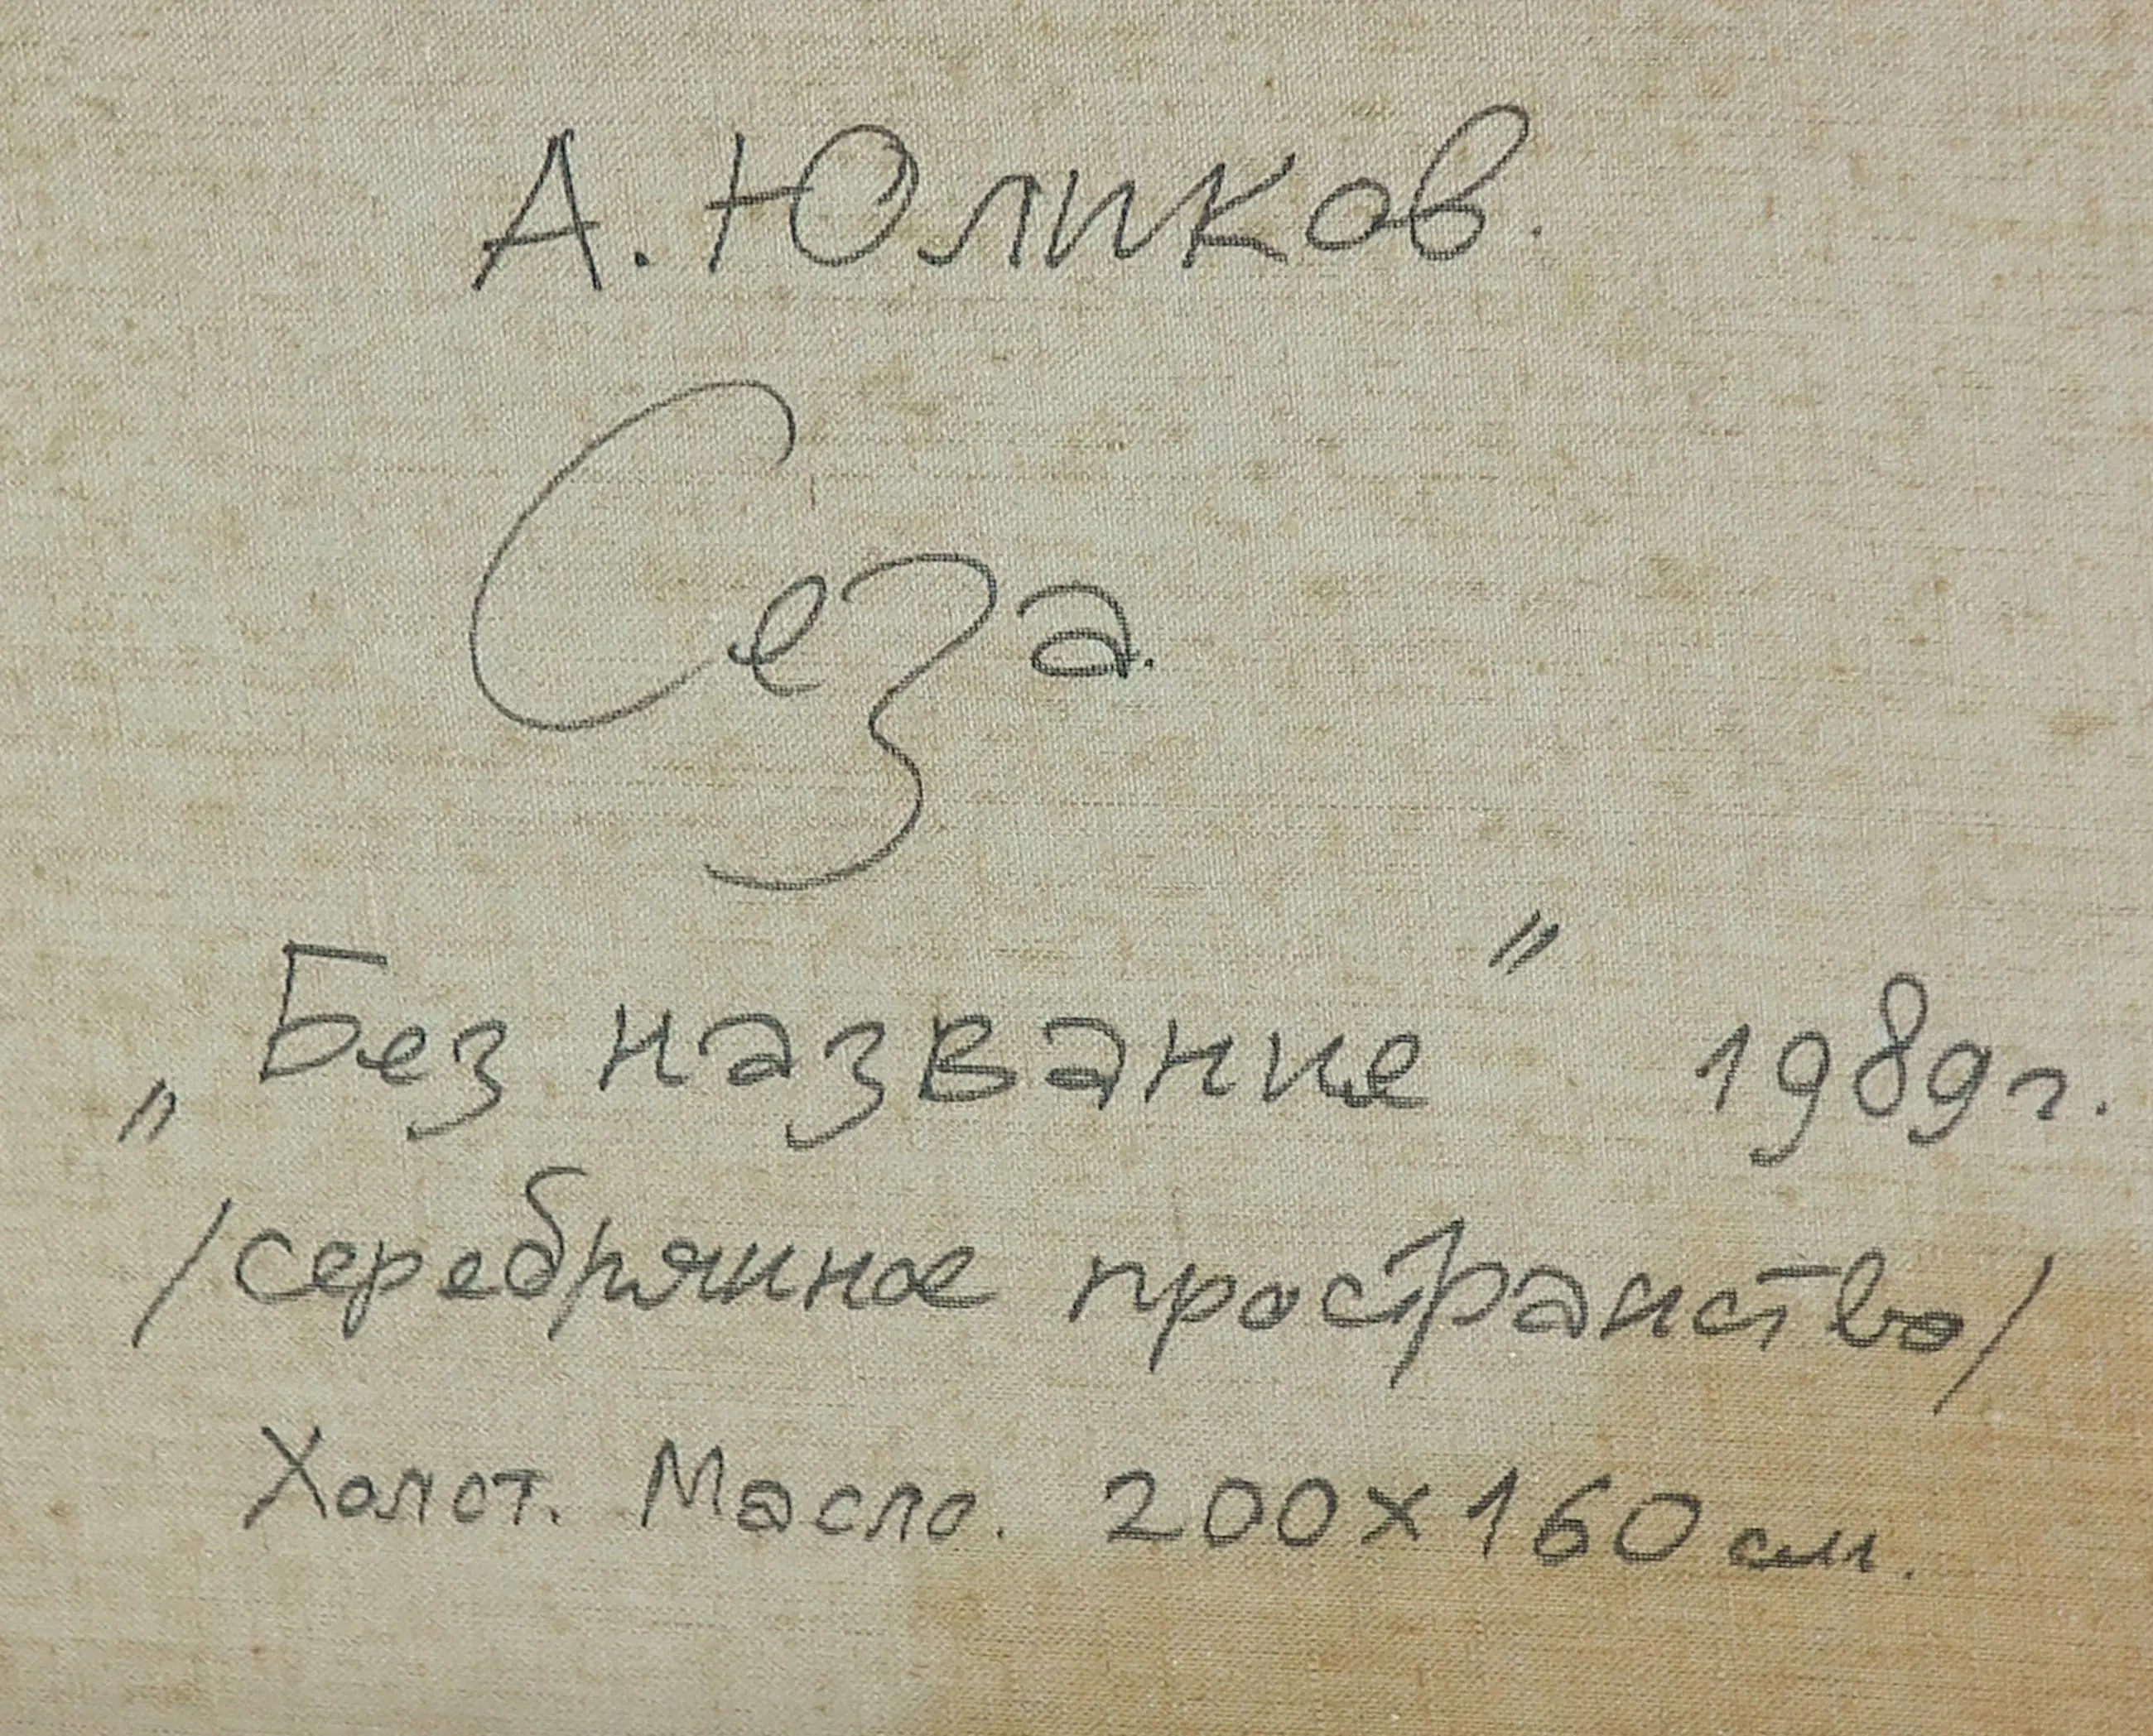 А. Юликов.
Сеза.
„Без название" 1989 г.
/серебряиное пространство/
Холст. Масло. 200×160 см.